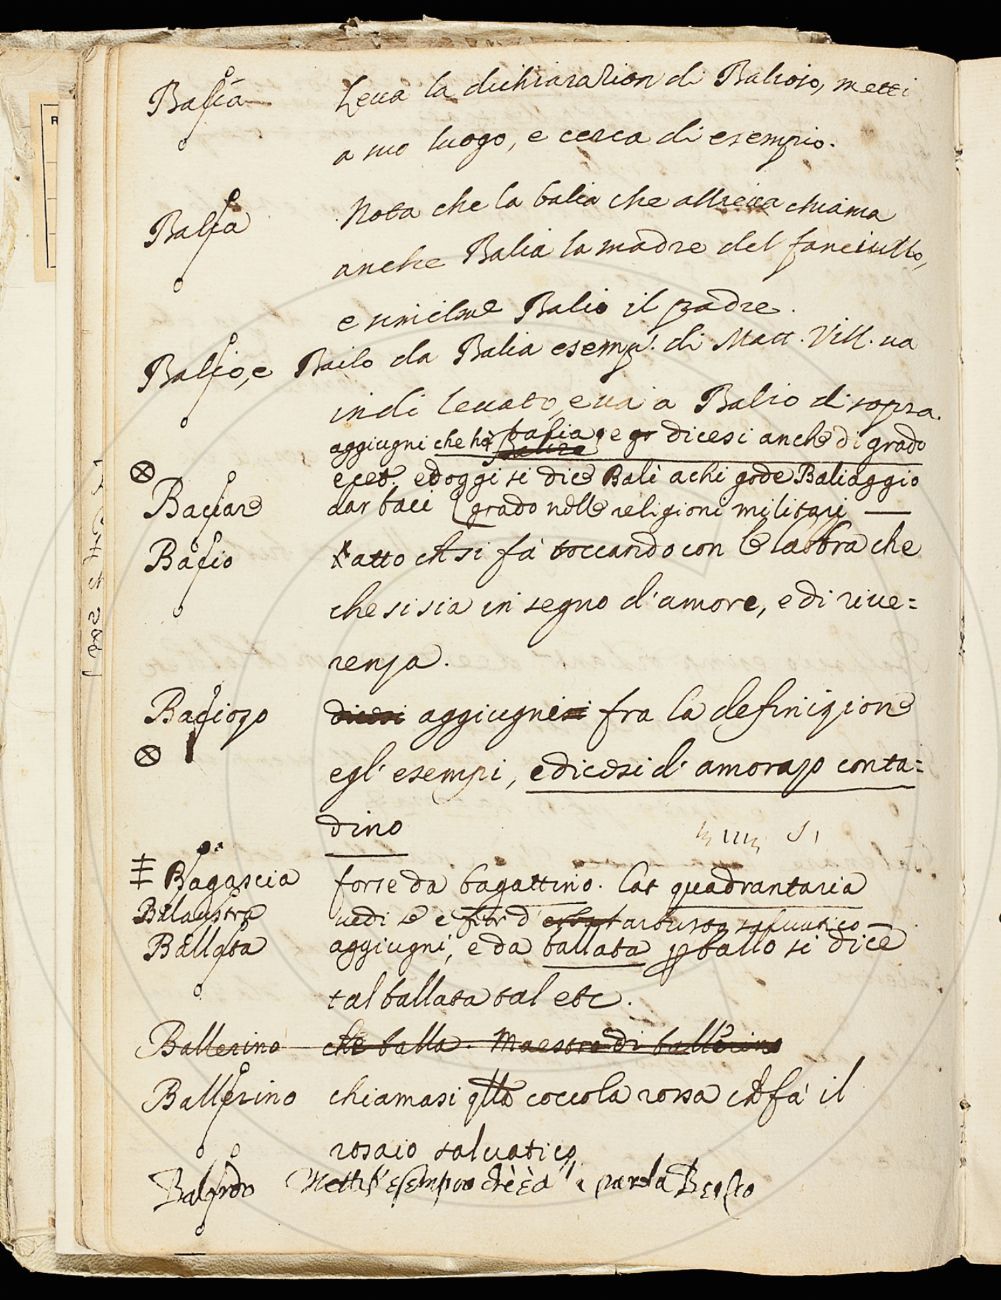 Balia Leva la dichiarazion di Balioso, metti
a suo luogo, e cerca di esempio.
Balia Nota che la balia che allieva chiama
anche Balia la madre del fanciullo,
e similme Balio il padre.
Balio, e Bailo da Balia esemp. di Matt. Vill. va
indi levato, e va a Balio di sopra.
aggiugni che ha balia e dicesi anche di grado
ecet. ed oggi si dice Balì a chi gode Baliaggio
Baciare dar baci (grado nelle religioni militari
Bacio atto che si fà toccando con le labbra che
che si sia in segno d'amore, e di rive=
renza.
Baciozo dicesi aggiugnesi fra la definizione
egl' esempi, e dicesi d' amorazo conta=
dino
Bagascia forse da bagattino. Lat quadrantaria
Balaustra vedi se e fior d' arbusto salvatico
Ballata aggiugni, e da ballata p ballo si dice
tal ballata tal etc.
Ballerino che balla. Maestro di ballerino
Ballerino chiamasi qlla coccola rossa che fà il
rosaio salvatico